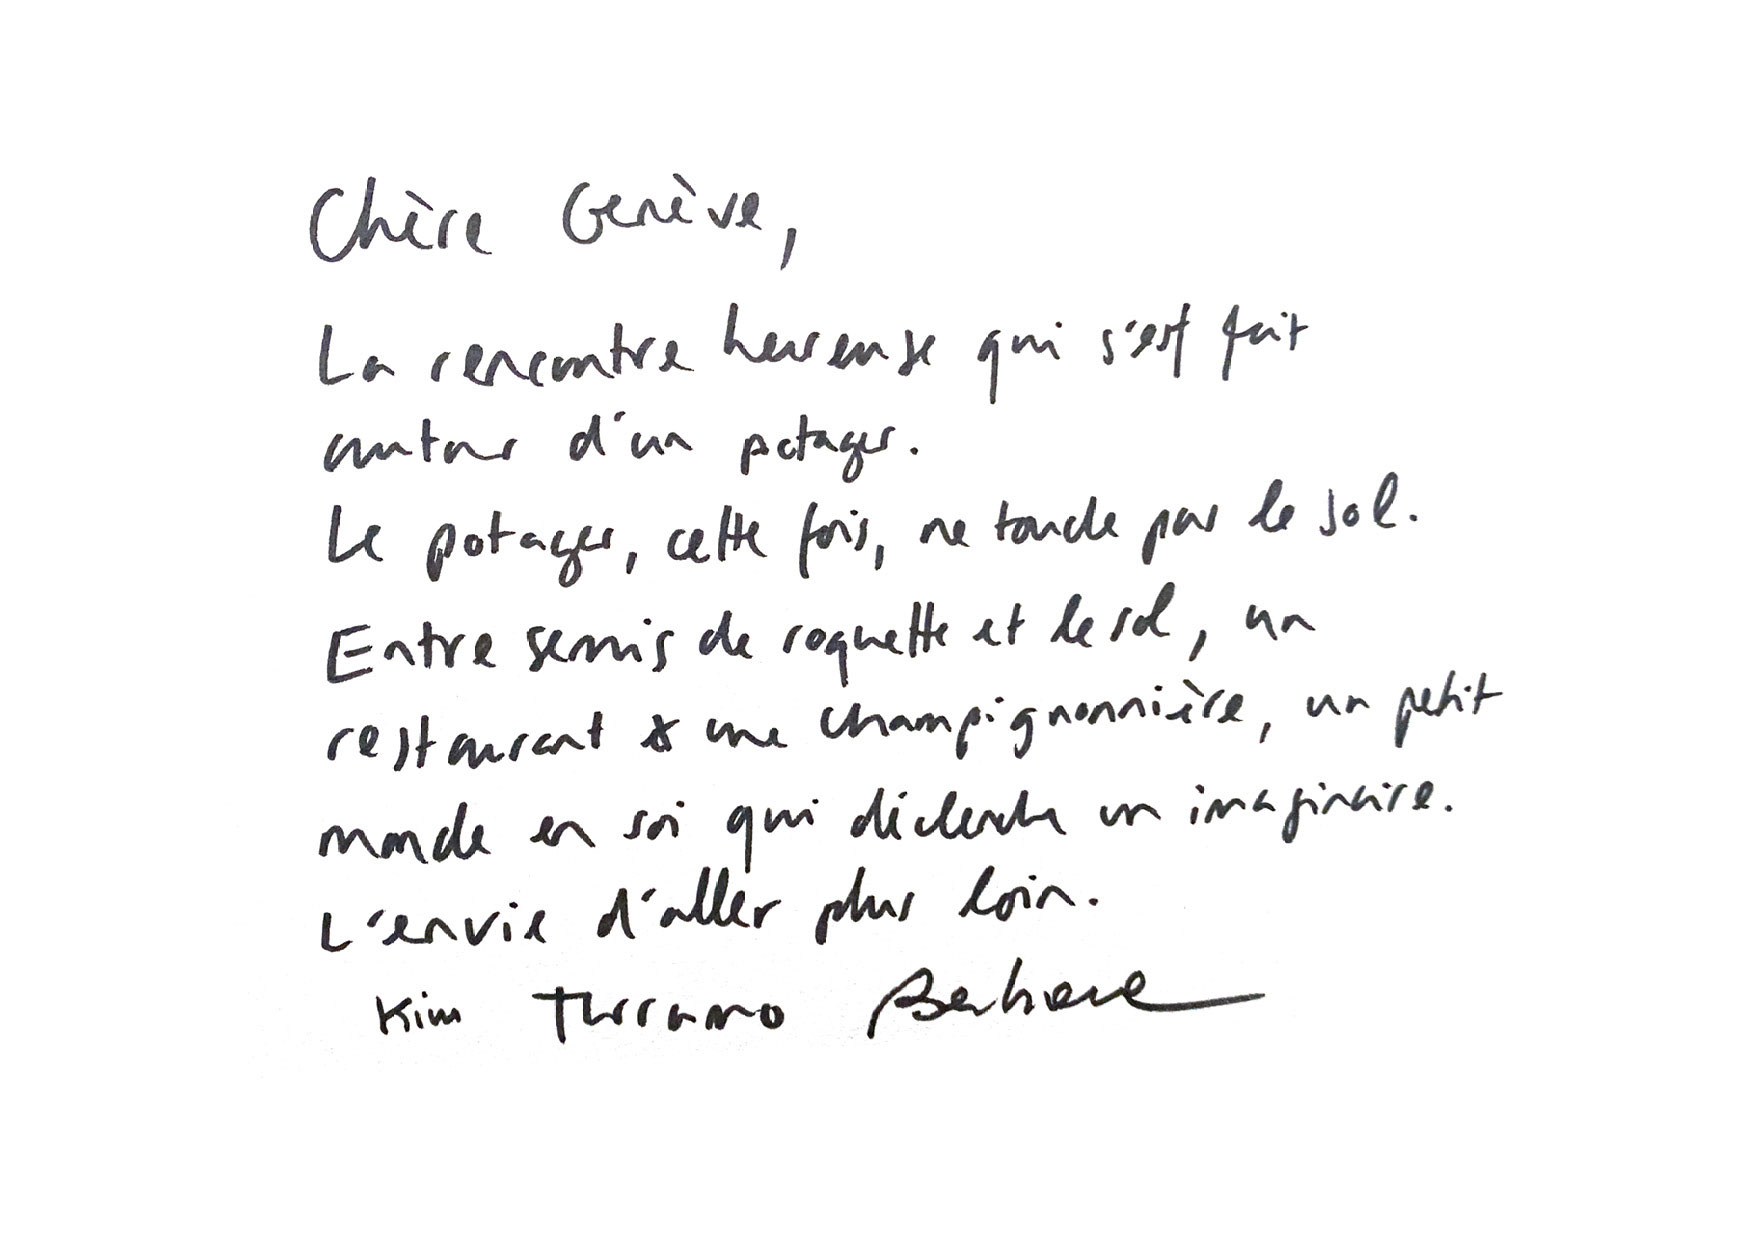 Chère Genève,
La rencontre heureuse qui s'est fait
autour d'un potager.
Le potager, cette fois, ne touche pas le sol.
Entre semis de roquette et le sol, un
restaurant & une champignonnière, un petit
monde en soi qui déclenche un imaginaire.
L'envie d'aller plus loin.
Kim